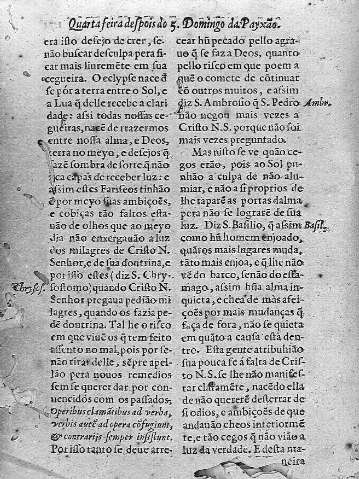 Quarta feira despois do 5. Domingo da Payxão.
era isto desejo de crer, senão
buscar desculpa pera ficar
mais liuremẽte em sua
cegueira. O eclypse nace de
se pór a terra entre o Sol, e
a Lua q̃ delle recebe a claridade:
assi todas nossas cegueiras,
nacẽ de trazermos
entre nossa alma, e Deos,
terra no meyo, e desejos q̃
fazẽ sombra de sorte q̃ não
fica capas de receber luz: e
assim estes Fariseos tinhão
é por meyo suas ambições,
e cobiças tão faltos estauão
de olhos que ao meyo
dia não enxergauão a luz
dos milagres de Cristo N.
Senhor, e de sua doutrina, e
por isso estes (diz S. Chrysostomo)
quando Cristo N.
Chrysos.
Senhor pregaua pedião milagres,
quando os fazia pedẽ
doutrina. Tal he o risco
em que viue os q̃ tem feito
assento no mal, pois por se
não tirar delle, sẽpre apellão
pera nouos remedios
sem se querer dar por conuencidos
com os passados;
operibus clamãtibus ad verba,
verbis autẽ ad opera cõfugiunt,
& contrarijs semper insistunt.
Por isso tanto se deue arrecear
hũ pecado pello agrauo
q̃ se faz a Deos, quanto
pello risco em que poem a
quẽ o comete de cõtinuar
cõ outros muitos, e assim
diz S. Ambrosio q̃ S. Pedro
Ambr.
não negou mais vezes a
Cristo N.S. porque não foi
mais vezes preguntado.
Mas nisto se ve quão cegos
erão, pois ao Sol punhão
a culpa de não alumiar,
e não a si proprios de
lhe taparẽ as portas dalma
pera não se lograrẽ de sua
luz. Diz S. Basilio, q̃ assim
Basil.
como hũ homem enjoado,
quãtos mais lugares muda,
tãto mais enjoa, e q̃ lhe não
vẽ do barco, senão do estamago,
assim hũa alma inquieta,
e chea de màs afeições
por mais mudanças q̃
faça de fora, não se quieta
em quãto a causa está dentro.
Esta gente atribuîa isto
sua pouca fe á falta de Cristo
N.S. se lhe não manifestar
claramẽte, nacẽdo ella
de não quererẽ desterrar de
si odios, e ambições de que
andauão cheos interiormente,
e tão cegos q̃ não vião a
luz da verdade. E desta maneira